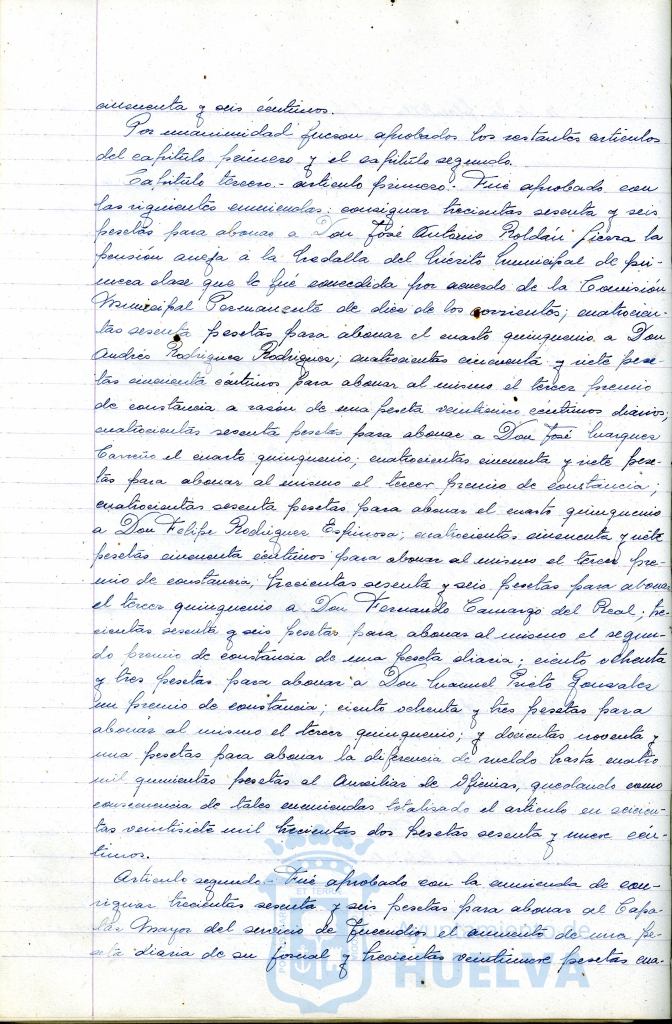 cincuenta y seis céntimos.
Por unanimidad fueron aprobados los restantes articulos
del capítulo primero y el capítulo segundo.
Capítulo tercero.- articulo primero.- Fué aprobado con
las siguientes enmiendas: consignar trecientas sesenta y seis
pesetas para abonar a Don José Antonio Roldán Licera la
pensión aneja á la Medalla del Mérito Municipal de pri-
mera clase que le fué concedida por acuerdo de la Comisión
Municipal Permanente de diez de los corrientes; cuatrocien-
tas sesenta pesetas para abonar el cuarto quinquenio a Don
Andrés Rodriguez Rodriguez; cuatrocientas cincuenta y siete pese-
tas cincuenta céntimos para abonar al mismo el tercer premio
de constancia a razón de una peseta veinticinco céntimos diarios;
cuatrocientas sesenta pesetas para abonar a Don José Marquez
Carreño el cuarto quinquenio; cuatrocientas cincuenta y siete pese-
tas para abonar al mismo el tercer premio de constancia;
cuatrocientas sesenta pesetas para abonar el cuarto quinquenio
a Don Felipe Rodriguez Espinosa; cuatrocientas cincuenta y siete
pesetas cincuenta céntimos para abonar al mismo el tercer pre-
mio de constancia; trecientas sesenta y seis pesetas para abonar
el tercer quinquenio a Don Fernando Camargo del Real; tre-
cientas sesenta y seis pesetas para abonar al mismo el segun-
do premio de constancia de una peseta diaria; ciento ochenta
y tres pesetas para abonar a Don Manuel Prieto Gonzalez
un premio de constancia; ciento ochenta y tres pesetas para
abonar al mismo el tercer quinquenio; y docientas noventa y
una pesetas para abonar la diferencia de sueldo hasta cuatro
mil quinientas pesetas al Auxiliar de Oficinas, quedando como
consecuencia de tales enmiendas totalizado el articulo en seicien-
tas veintisiete mil trecientas dos pesetas sesenta y nueve cén-
timos.
Articulo segundo.- Fué aprobado con la enmienda de con-
signar trecientas sesenta y seis pesetas para abonar al Capa-
táz Mayor del servicio de Incendios el aumento de una pe-
seta diaria de su jornal y trecientas veintinueve pesetas cua-
HUELVA